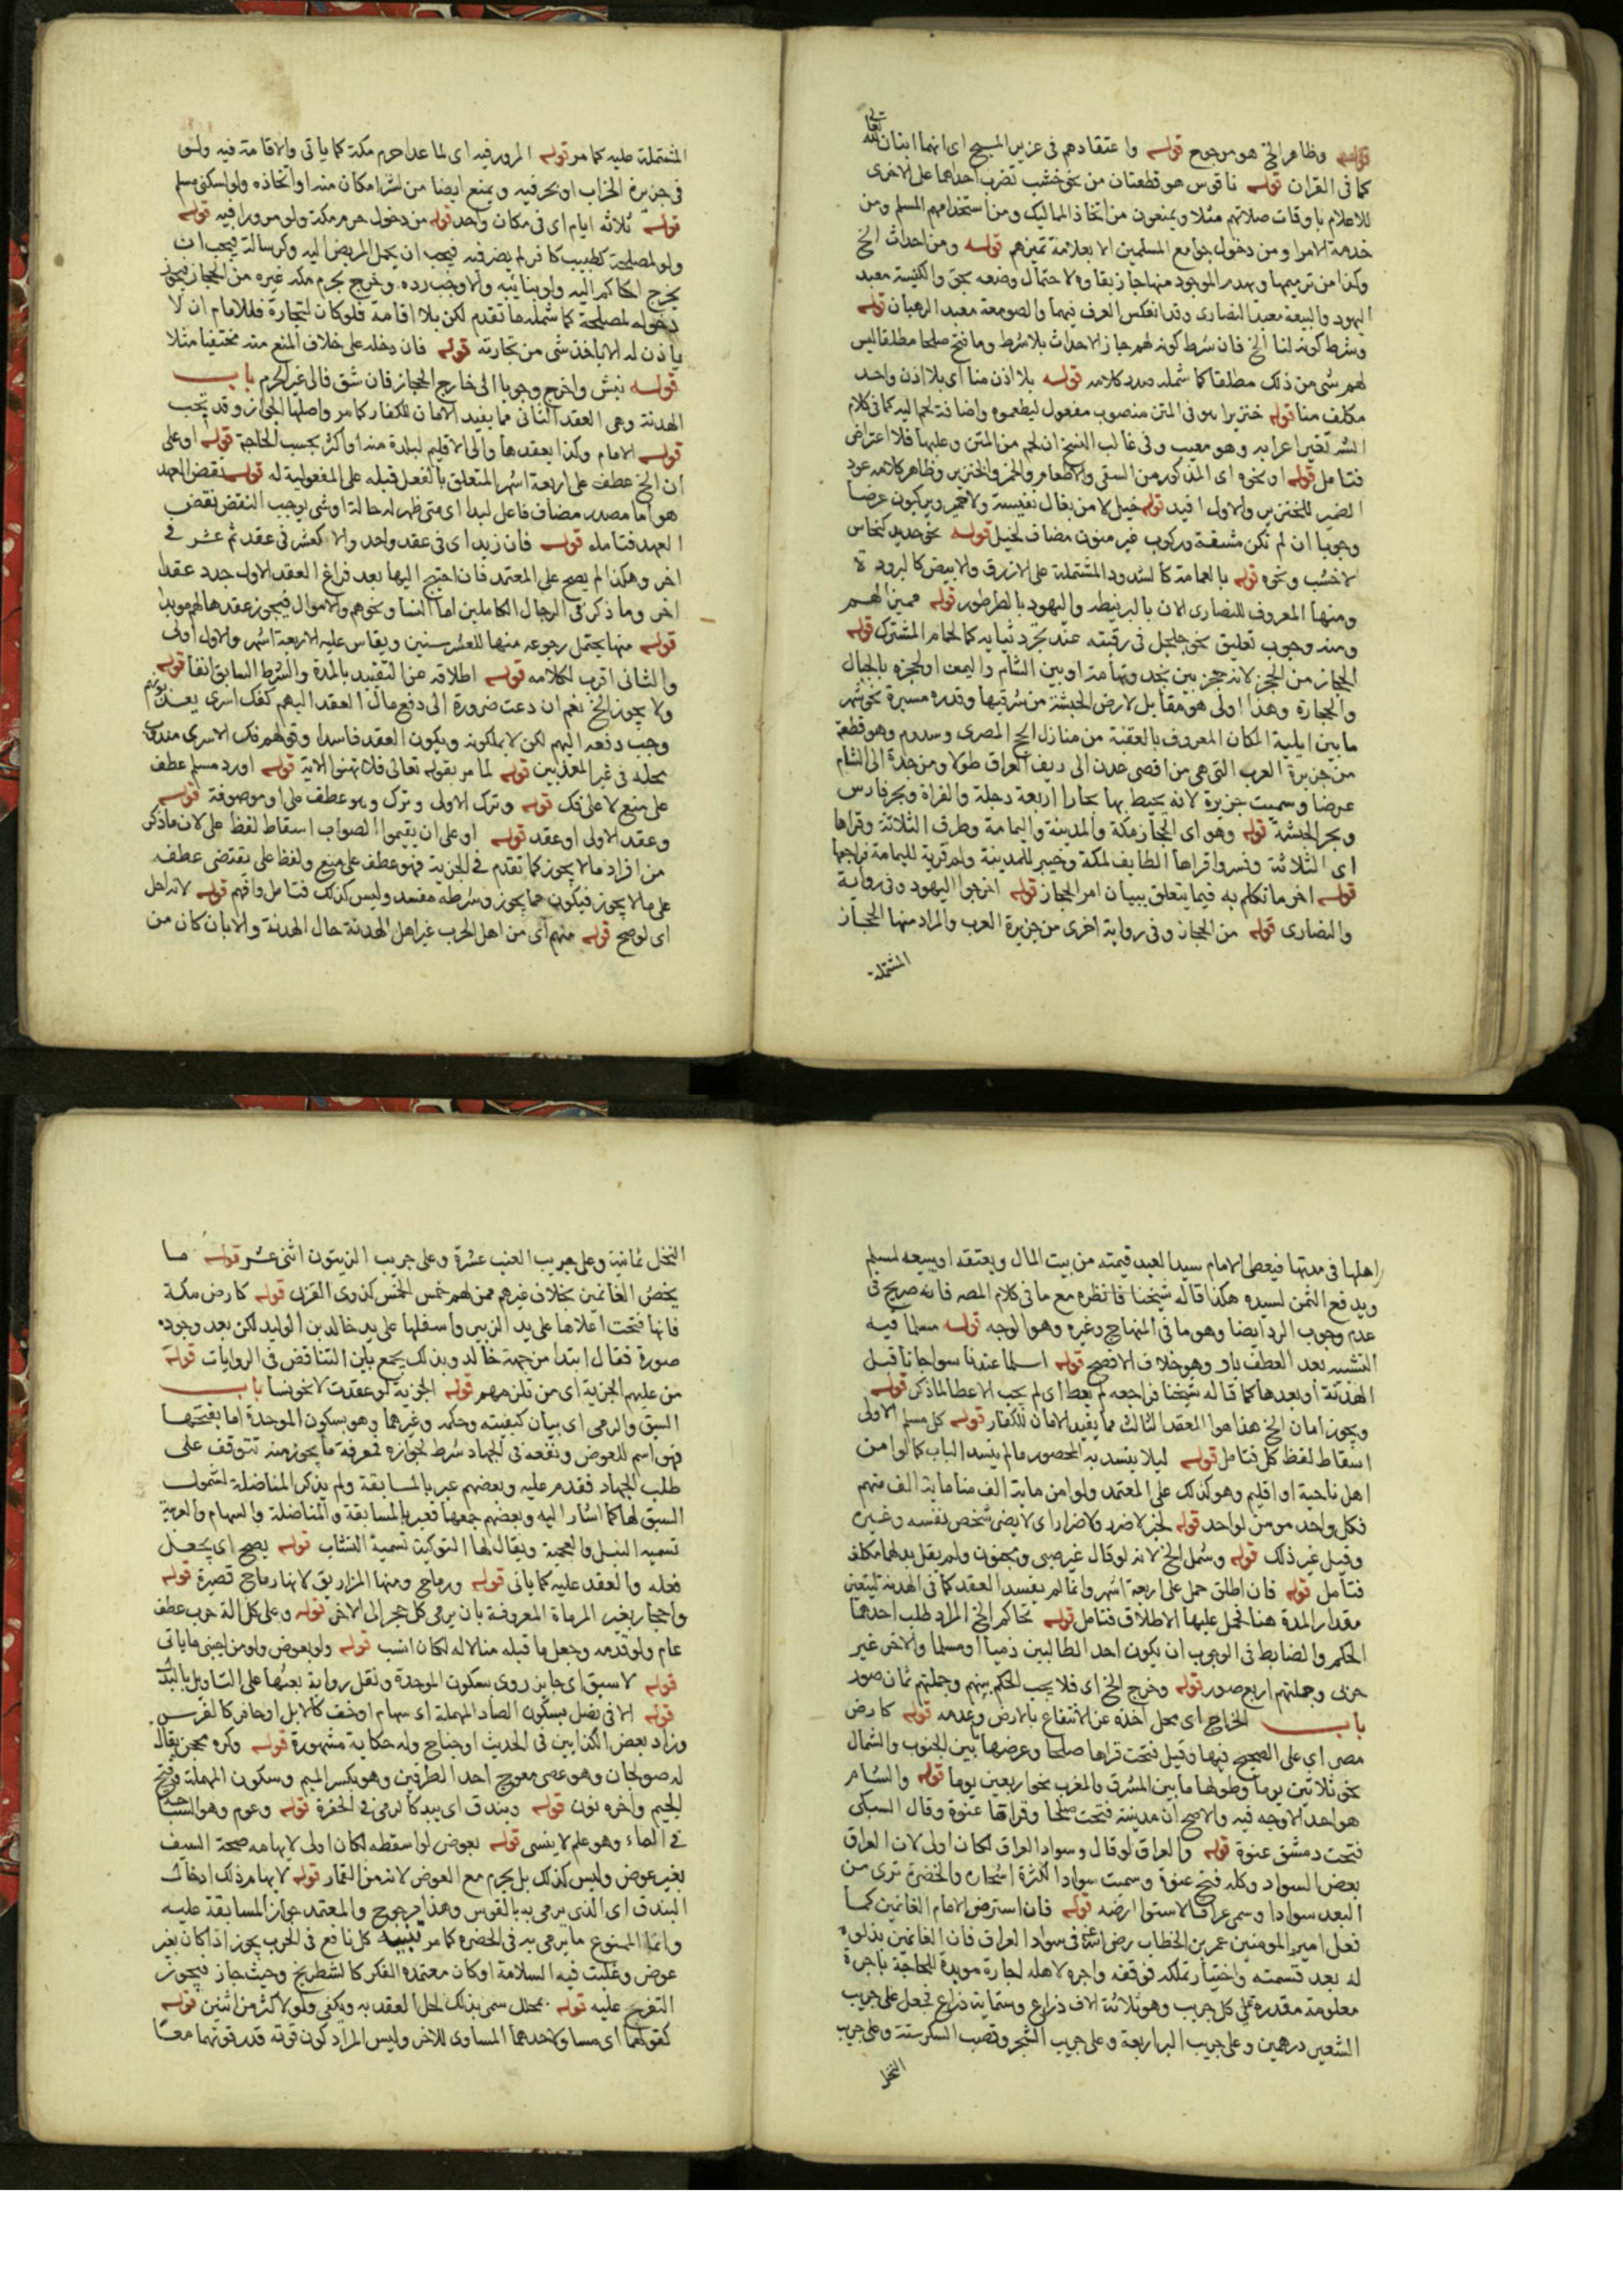 قوله وظاهر الخ هو مرجوح قوله واعتقادهم في عزير المسيح اي انهما ابنان لله
تعالى
كما في القران قوله ناقوس هو قطعتان من نحو خشب تضرب احداهما على الاخرى
للاعلام باوقات صلاتهم مثلا ويمنعون من اتخاذ المماليك ومن استخدامهم المسلم ومن
خدمة الامرا ومن دخول جوامع المسلمين الا بعلامة تميزهم قوله ومن احداث الخ
وكذا من ترميمها ويهدم الموجود منها جاز بقاوه لاحتمال وضعه بحق والكنيسة معبد
اليهود والبيعة معبد النصارى وقد انعكس العرف فيهما والصومعة معبد الرهبان قوله
وشرط كونه لنا الخ فان شرط كونه لهم جاز الاحداث بلا شرط وما فتح صلحا مطلقا ليس
لهم شي من ذلك مطلقا كما شمله صدر كلامه قوله بلا اذن منا اي بلا اذن واحد
مكلف منا قوله خنزيرا هو في المتن منصوب مفعول ليطعموه واضافة لحم اليه كما في كلام
الش تغير اعرابه وهو معيب وفي غالب النسخ ان لحم من المتن وعليها فلا اعتراض
فتامل قوله او نحوه اي المذكور من السقي والاطعام والخمر والخنزير وظاهر كلامه عود
الضمير للخنزير والاول افيد قوله خيل لا من بغال نفيسة ولا حمير ويركبون عرضا
وجوبا ان لم تكن مشقة وركوب غير منون مضاف لخيل قوله نحو حديد كنحاس
لا خشب ونحوه قوله بالعمامة كالشدود المشتملة على الازرق والابيض كالبرود
ومنها المعروف للنصارى الان بالبرنيطه واليهود بالطرطور قوله مميز الهم
ومنه وجوب تعليق نحو جلجل في رقبته عند تجرد ثيابه كالحمام المشترك قوله
الحجاز من الحجز لانه حجز بين نجد وتهامة او بين الشام واليمن او لحجزه بالجبال
والحجارة وهذا اولى هو مقابل لارض الحبشة من شرقيها وقدره مسيرة نحو شهر
ما بين ايلية المكان المعروف بالعقبة من منازل الحج المصري وسدوم وهو قطعة
من جزيرة العرب التي هي من اقصى عدن الى ريف العراق طولا ومن جدة الى الشام
عرضا وسميت جزيرة لانه يحيط بها بحارا اربعة دجلة والفراة وبحر فارس
وبحر الحبشة قوله وهو اي الحجاز مكة والمدينة واليمامة وطرق الثلاثة وقراها
اي الثلاثة وفسروا قراها الطايف لمكة وخيبر للمدينة ولم قرية لليمامة فراجعها
قوله اخر ما تكلم به فيما يتعلق ببيان امر الحجاز قوله اخرجوا اليهود وفي رواية
والنصارى قوله من الحجاز وفي رواية اخرى من جزيرة العرب والمراد منها الحجاز
المشتملة
المشتملة عليه كما مر قوله المرور فيه اي لما عدا حرم مكة كما ياتي والاقامة فيه ولو
في جزيرة الخراب او بحر فيه ويمنع ايضا من اشترا مكان منه او اتخاذه ولو لسكنى مسلم
قوله ثلاثه ايام اي في مكان واحد قوله من دخول حرم مكة ولو مرورا فيه قوله
ولو لمصلحة كطبيب كافر لم يضر فيه فيجب ان يحمل المريض اليه وكرسالة فيجب ان
يخرج الحاكم اليه ولو بنايبه والا وجب رده وخرج بحرم مكه غيره من الحجاز فيجوز
دخوله لمصلحة كما شمله ما تقدم لكن بلا اقامة فلو كان لتجارة فللامام ان لا
ياذن له الا باخذ شي من تجارته قوله فان دخله على خلاف المنع منه مختفيا مثلا
قوله نبش واخرج وجوبا الى خارج الحجاز فان شق فالى غير الحرم باب
الهدنة وهي العقد الثاني مما يفيد الامان للكفار كما مر واصلها الجواز وقد تجب
قوله الامام وكذا يعقدها والي الاقليم لبلدة منه او اكثر بحسب الحاجة قوله او على
ان الخ عطف على اربعة اشهر المتعلق بالفعل قبله على المفعولية له قوله نقض العهد
هو اما مصدر مضاف فاعل لبدا اي متى ظهر له حالة او شي يوجب النقض نقض
العهد فتامله قوله فان زيد اي في عقد واحد والا كعشر في عقد ثم عشر في
اخر وهكذا لم يصح على المعتمد فان احتيج اليها بعد فراغ العقد الاول جدد عقدا
اخر وما ذكر في الرجال الكاملين اما النسا ونحوهم والاموال فيجوز عقدها لهم مويدا
قوله منها يحتمل رجوعه منها للعشر سنين ويقاس عليه الاربعة اشهر والاول اولى
والثاني اقرب لكلامه قوله اطلاقه عن التقييد بالمدة والشرط السابق انفا قوله
ولا يجوز الخ نعم ان دعت ضرورة الى دفع مال العقد اليهم كفك اسرى يعذبونهم
وجب دفعه اليهم لكن لا يملكونه ويكون العقد فاسدا وقولهم فك الاسرى مندوب
محله في غير المعذبين قوله لما مر بقوله تعالى فلا تهنوا الاية قوله او رد مسلم عطف
على منع لا على فك قوله وترك الاولى وترك وهو عطف على او موصوفة قوله
وعقد الاولى او عقد قوله او على ان يقيموا الصواب اسقاط لفظ على لان ما ذكر
من افراد ما لا يجوز كما تقدم في الجزية فهو عطف على منع ولفظ على يقتضي عطف
على ما لا يجوز فيكون مما يجوز وشرطه مفسد وليس كذلك فتامل وافهم قوله لانه احل
اي لو صح قوله منهم اي من اهل الحرب غير اهل الهدنة حال الهدنة والا بان كان من
اهلها في مدتها فيعطي الامام سيد العبد قيمته من بيت المال ويعتقه او يبيعه لمسلم
ويدفع الثمن لسيده هكذا قاله شيخنا فانظره مع ما في كلام المصه فانه صريح في
عدم وجوب الرد ايضا وهو ما في المنهاج وغيره وهو الوجه قوله مسلما فيه
التشبيه بعد العطف باو وهو خلاف الافصح قوله اسلما عندنا سوا جانا قبل
الهدنة او بعدها كما قاله شيخنا فراجعه لم يعط اي لم يجب الاعطا لما ذكر قوله
ويجوز امان الخ هذا هو العقد الثالث مما يفيد الامان للكفار قوله كل مسلم الاولى
اسقاط لفظ كل فتامل قوله ليلا ينسد به المحصور ما لم ينسد الباب كما لو امن
اهل ناحية او اقليم وهو كذلك على المعتمد ولو امن ماية الف منا ماية الف منهم
فكل واحد مومن لواحد قوله لخبر لا ضرر ولا ضرار اي لا يضر شخص نفسه وغيره
وقيل غير ذلك قوله وشمل الخ لانه لو قال غير صبي ومجنون ولم يقل بدلهما مكلف
فتامل قوله فان اطلق حمل على اربعة اشهر وانما لم يفسد العقد كما في الهدنة ليتعين
مقدار المدة هنا فحمل عليها الاطلاق فتامل قوله تحاكم الخ المراد طلب احدهما
الحكم والضابط في الوجوب ان يكون احد الطالبين ذميا او مسلما والاخر غير
حربي وجملتهم اربع صور قوله وخرج الخ اي فلا يجب الحكم بينهم وجملتهم ثمان صور
باب الخراج اي محل اخذه عن الانتفاع بالارض وعدمه قوله كارض
مصر اي على الصحيح فيها وقيل فتحت قراها صلحا وعرضها بين الجنوب والشمال
نحو ثلاثين يوما وطولها ما بين المشرق والمغرب نحو اربعين يوما قوله والشام
هو احد الاوجه فيه والاصح ان مدينته فتحت صلحا وقراها عنوة وقال السبكي
فتحت دمشق عنوة قوله والعراق لو قال وسواد العراق لكان اولى لان العراق
بعض السواد وكله فتح عنوة وسميت سوادا لكثرة اشجاره والخضرة ترى من
البعد سوادا وسمي عراقا لاستوا ارضه قوله فان استرض الامام الغانمين كما
فعل امير المومنين عمر بن الخطاب رضي الله عنه في سواد العراق فان الغانمين بذلوه
له بعد قسمته واختيار تملكه فوقفه واجره لاهله اجارة موبدة للحاجة باجرة
معلومة مقدرة على كل جريب وهو ثلاثة الاف ذراع وستماية ذراع فجعل على جريب
الشعير درهمين وعلى جريب البر اربعة وعلى جريب الشجر وقصب السكر ستة وعلى جريب
النخل
النخل ثمانية وعلى جريب العنب عشرة وعلى جريب الزيتون اثني عشر قوله ما
يخص الغانمين بخلاف غيرهم ممن لهم خمس الخمس كذوي القربى قوله كارض مكة
فانها فتحت اعلاها على يد الزبير واسفلها على يد خالد بن الوليد لكن بعد وجود
صورة قتال ابتدا من جهة خالد وبذلك يجمع بين التناقض في الروايات قوله
من عليهم الجزية اي من تلزمهم قوله الجزية لو عقدت لا نحو نسا باب
السبق والرمي اي بيان كيفيته وحكمه وغيرهما وهو بسكون الموحدة اما بفتحها
فهو اسم للعوض ونفعه في الجهاد شرط لجوازه فمعرفة ما يجوز منه تتوقف على
طلب الجهاد فقدم عليه وبعضهم عبر بالمسابقة ولم يذكر المناضلة لشمول
السبق لها كما اشار اليه وبعضهم جمعها فعبر بالمسابقة والمناضلة والسهام والعربية
تسميه النبل والعجمية ويقال لها التوكية تسمية النشاب قوله يصح اي يحصل
فعله والعقد عليه كما ياتي قوله ورماح ومنها المزاريق لانها رماح قصيرة قوله
واحجار بغير المرماة المعروفة بان يرمي كل حجر الى الاخر قوله وعلى كل الة حرب عطف
عام ولو قدمه وجعل ما قبله مثالا له لكان انسب قوله ولو بعوض ولو من اجنبي ما ياتي
قوله لا سبق اي جايز روي بسكون الموحدة ونقل رواية بعضها على التاويل بالبدل
قوله الا في نصل بسكون الصاد المهملة اي سهام او خف كالابل او حافر كالفرس
وزاد بعض الكذابين في الحديث او جناح وله حكاية مشهورة قوله وكره محجن يقال
له صولجان وهو عصى معوج احد الطرفين وهو بكسر الميم وسكون المهملة وفتح
الجيم واخره نون قوله وبندق اي بيد كما لو رمي في الحفرة قوله وعوم وهو السباحة
في الماء وهو علم لا ينسى قوله بعوض لو اسقطه لكان اولى لايهامه صحة السبق
بغير عوض وليس كذلك بل يحرم مع العوض لانه من القمار قوله لايهامه ذلك ادخال
البندق اي الذي يرمى به بالقوس وهذا مرجوح والمعتمد جواز المسابقة عليه
وانما الممنوع ما يرمى به في الحضره كما مر تنبيه كل نافع في الحرب يجوز اذا كان بغير
عوض وغلبت فيه السلامة او كان معتمده الفكر كالشطرنج وحيث جاز فيجوز
التفرج عليه قوله بمحلل سمي بذلك لحل العقد به ويكفي ولو لاكثر من اثنين قوله
كفو لهما اي مساو لاحدهما المساوي للاخر وليس المراد كون قوته قدر قوتهما معا